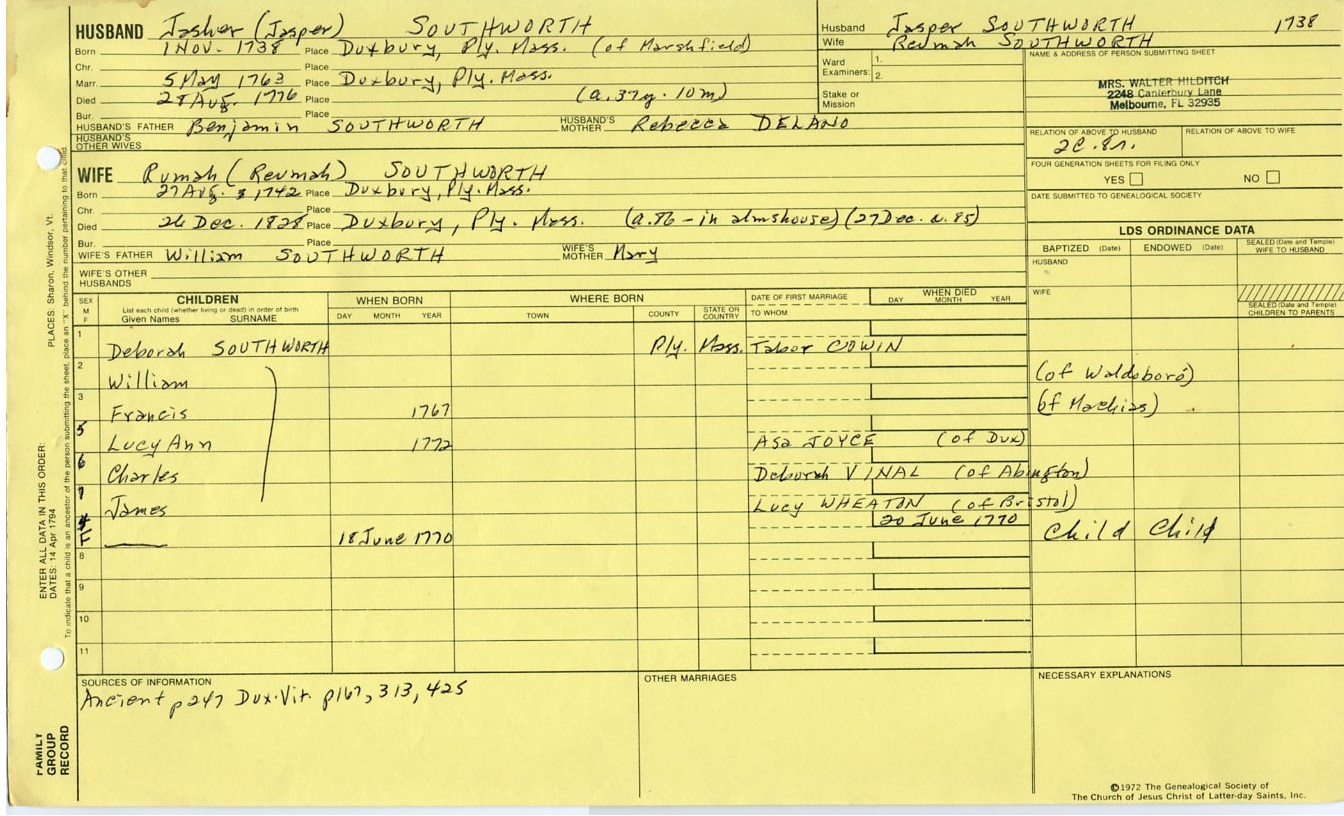 HUSBAND Jasher (Jasper) SOUTHWORTH
Born 1 Nov. 1738 Place Duxbury, Ply. Mass. (of Marshfield)
Chr. Place
Marr. 5 May 1763 Place Duxbury, Ply. Mass.
Died 28 Aug. 1776 Place (a. 37y. 10m)
Bur. Place
HUSBAND'S FATHER Benjamin SOUTHWORTH HUSBAND'S MOTHER Rebecca DELANO
HUSBAND'S OTHER WIVES
WIFE Rumah (Reumah) SOUTHWORTH
Born 27 Aug. 1742 Place Duxbury, Ply. Mass.
Chr. Place
Died 26 Dec. 1828 Place Duxbury, Ply. Mass. (a. 86 - in almshouse) (27 Dec. a. 85)
Bur. Place
WIFE'S FATHER William SOUTHWORTH WIFE'S MOTHER Mary
WIFE'S OTHER HUSBANDS
Husband Jasper SOUTHWORTH 1738
Wife Reumah SOUTHWORTH
Ward Examiners: 1.
2.
Stake or Mission
NAME & ADDRESS OF PERSON SUBMITTING SHEET
MRS. WALTER HILDITCH
2248 Canterbury Lane
Melbourne, FL 32935
RELATION OF ABOVE TO HUSBAND RELATION OF ABOVE TO WIFE
2C. 8r.
FOUR GENERATION SHEETS FOR FILING ONLY
YES NO
DATE SUBMITTED TO GENEALOGICAL SOCIETY
LDS ORDINANCE DATA
BAPTIZED (Date) ENDOWED (Date) SEALED (Date and Temple) WIFE TO HUSBAND
HUSBAND
WIFE
SEALED (Date and Temple) CHILDREN TO PARENTS
SEX M F
CHILDREN
List each child (whether living or dead) in order of birth
Given Names SURNAME
WHEN BORN
DAY MONTH YEAR
WHERE BORN
TOWN COUNTY STATE OR COUNTRY
DATE OF FIRST MARRIAGE
TO WHOM
WHEN DIED
DAY MONTH YEAR
1 Deborah SOUTHWORTH Ply. Mass. Tabor COWIN
2 William (of Waldoboro)
3 Francis 1767 (of Machias)
5 Lucy Ann 1772 Asa JOYCE (of Dux)
6 Charles Deborah VINAL (of Abington)
7 James Lucy WHEATON (of Bristol)
4 F 18 June 1770 20 June 1770 Child Child
8
9
10
11
SOURCES OF INFORMATION
Ancient p247 Dux. Vit. p167, 313, 425
OTHER MARRIAGES
NECESSARY EXPLANATIONS
©1972 The Genealogical Society of
The Church of Jesus Christ of Latter-day Saints, Inc.
PLACES: Sharon, Windsor, Vt.
To indicate that a child is an ancestor of the person submitting the sheet, place an "X" behind the number pertaining to that child.
ENTER ALL DATA IN THIS ORDER:
DATES: 14 Apr 1794
FAMILY
GROUP
RECORD